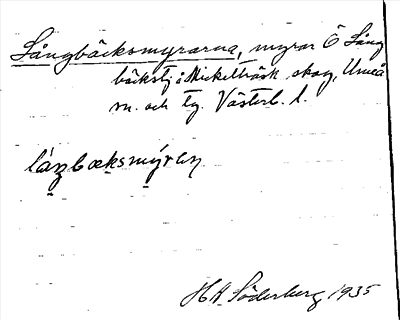 Långbäcksmyrarna, myrar Ö Lång
bäckstj i Mickelträsk skog, Umeå
sn. och tg. Västerb. l.
láŋbæksmýrɐɳ
H H Söderberg 1935